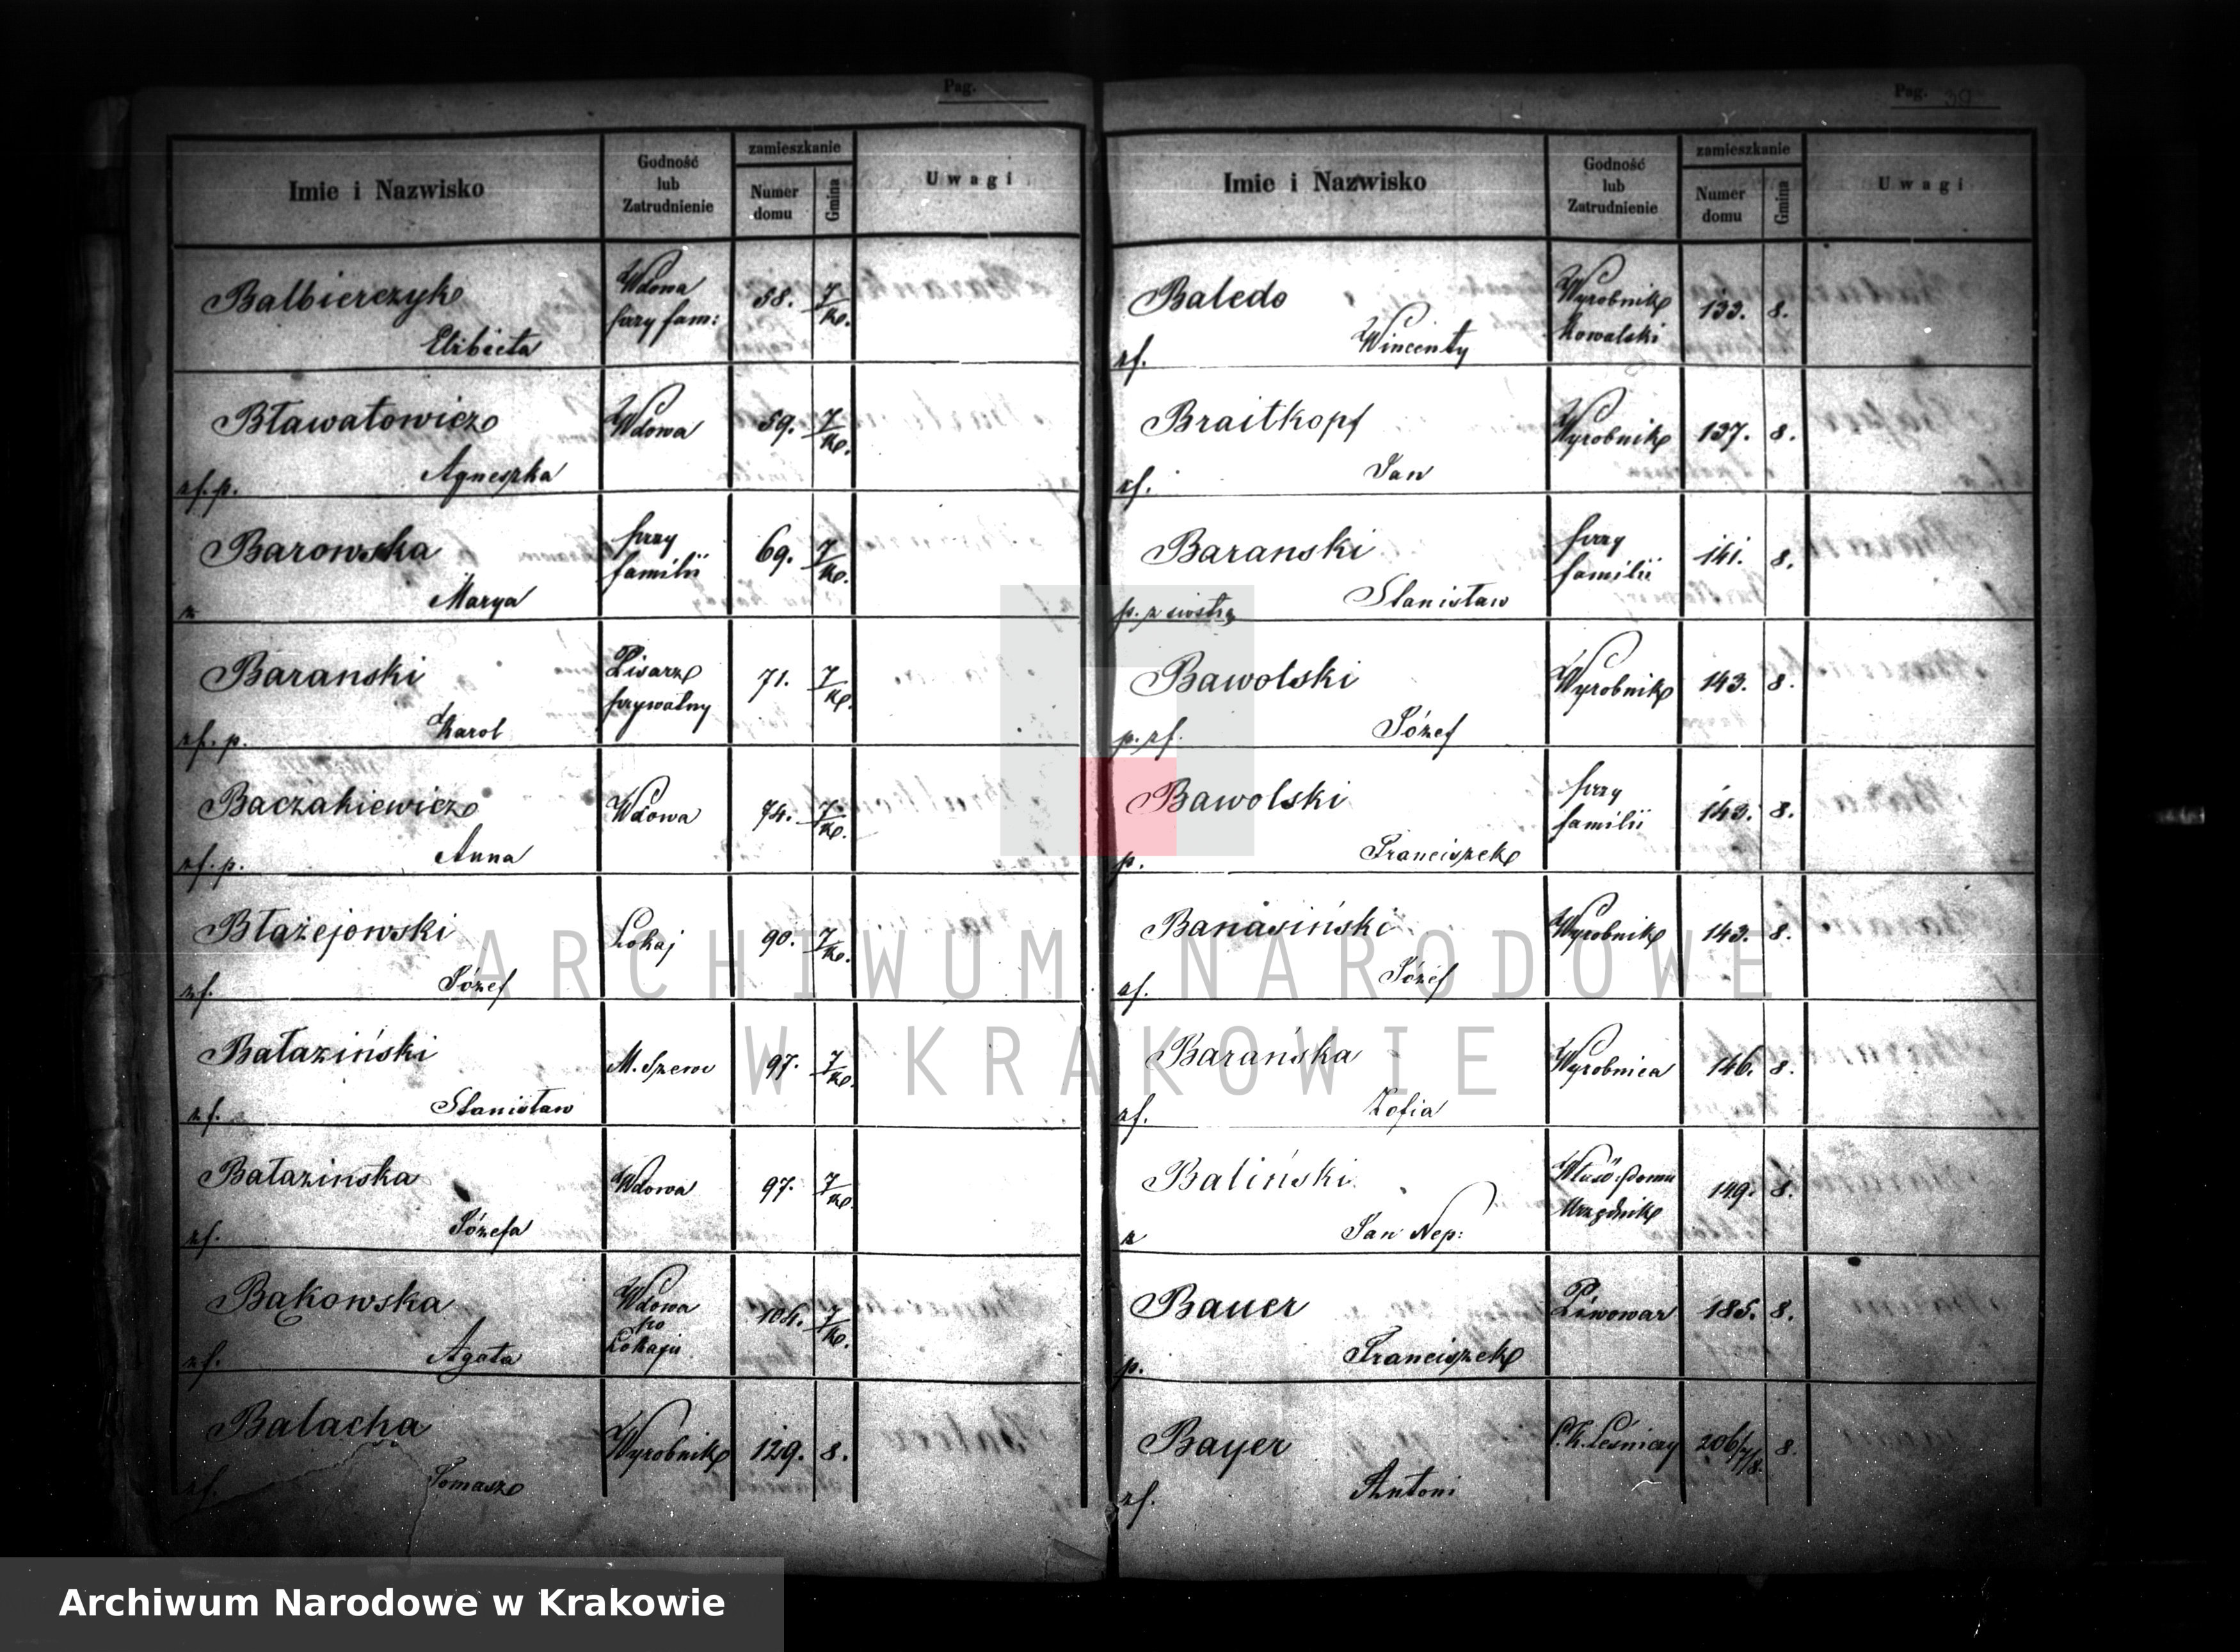 Pag.
Imie i Nazwisko
Godność
lub
Zatrudnienie
zamieszkanie
Numer
domu
Gmina
Uwagi
Balbierczyk
Elżbieta
Wdowa
przy fam:
58.
7/K.
Bławatowicz
zf. p.
Agneszka
Wdowa
59.
7/K.
Barowska
z
Marya
przy
familii
69.
7/K.
Baranski
zf. p.
Karol
Pisarz
prywatny
71.
7/K.
Baczakiewicz
zf. p.
Anna
Wdowa
74.
7/K.
Błażejowski
zf.
Józef
Lokaj
90.
7/K.
Bałaziński
zf.
Stanisław
M. Szewc
97.
7/K.
Bałazinska
zf.
Józefa
Wdowa
97.
7/K.
Bąkowska
zf.
Agata
Wdowa
po
Lokaju
104.
7/K.
Balacha
zf.
Tomasz
Wyrobnik
129.
8.
Pag. 39
Imie i Nazwisko
Godność
lub
Zatrudnienie
zamieszkanie
Numer
domu
Gmina
Uwagi
Baledo
zf.
Wincenty
Wyrobnik
Kowalski
133.
8.
Braitkopf
zf.
Jan
Wyrobnik
137.
8.
Baranski
p. z siostrą
Stanisław
przy
familii
141.
8.
Bawolski
p. zf.
Józef
Wyrobnik
143.
8.
Bawolski
p.
Franciszek
przy
familii
143.
8.
Banasiński
zf.
Józef
Wyrobnik
143.
8.
Barańska
zf.
Zofia
Wyrobnica
146.
8.
Baliński
z
Jan Nep:
Właś: domu
Urzędnik
149.
8.
Bauer
p.
Franciszek
Piwowar
185.
8.
Bayer
zf.
Antoni
C.K. Leśniczy
206/7/8.
8.
ARCHIWUM NARODOWE
W KRAKOWIE
Archiwum Narodowe w Krakowie